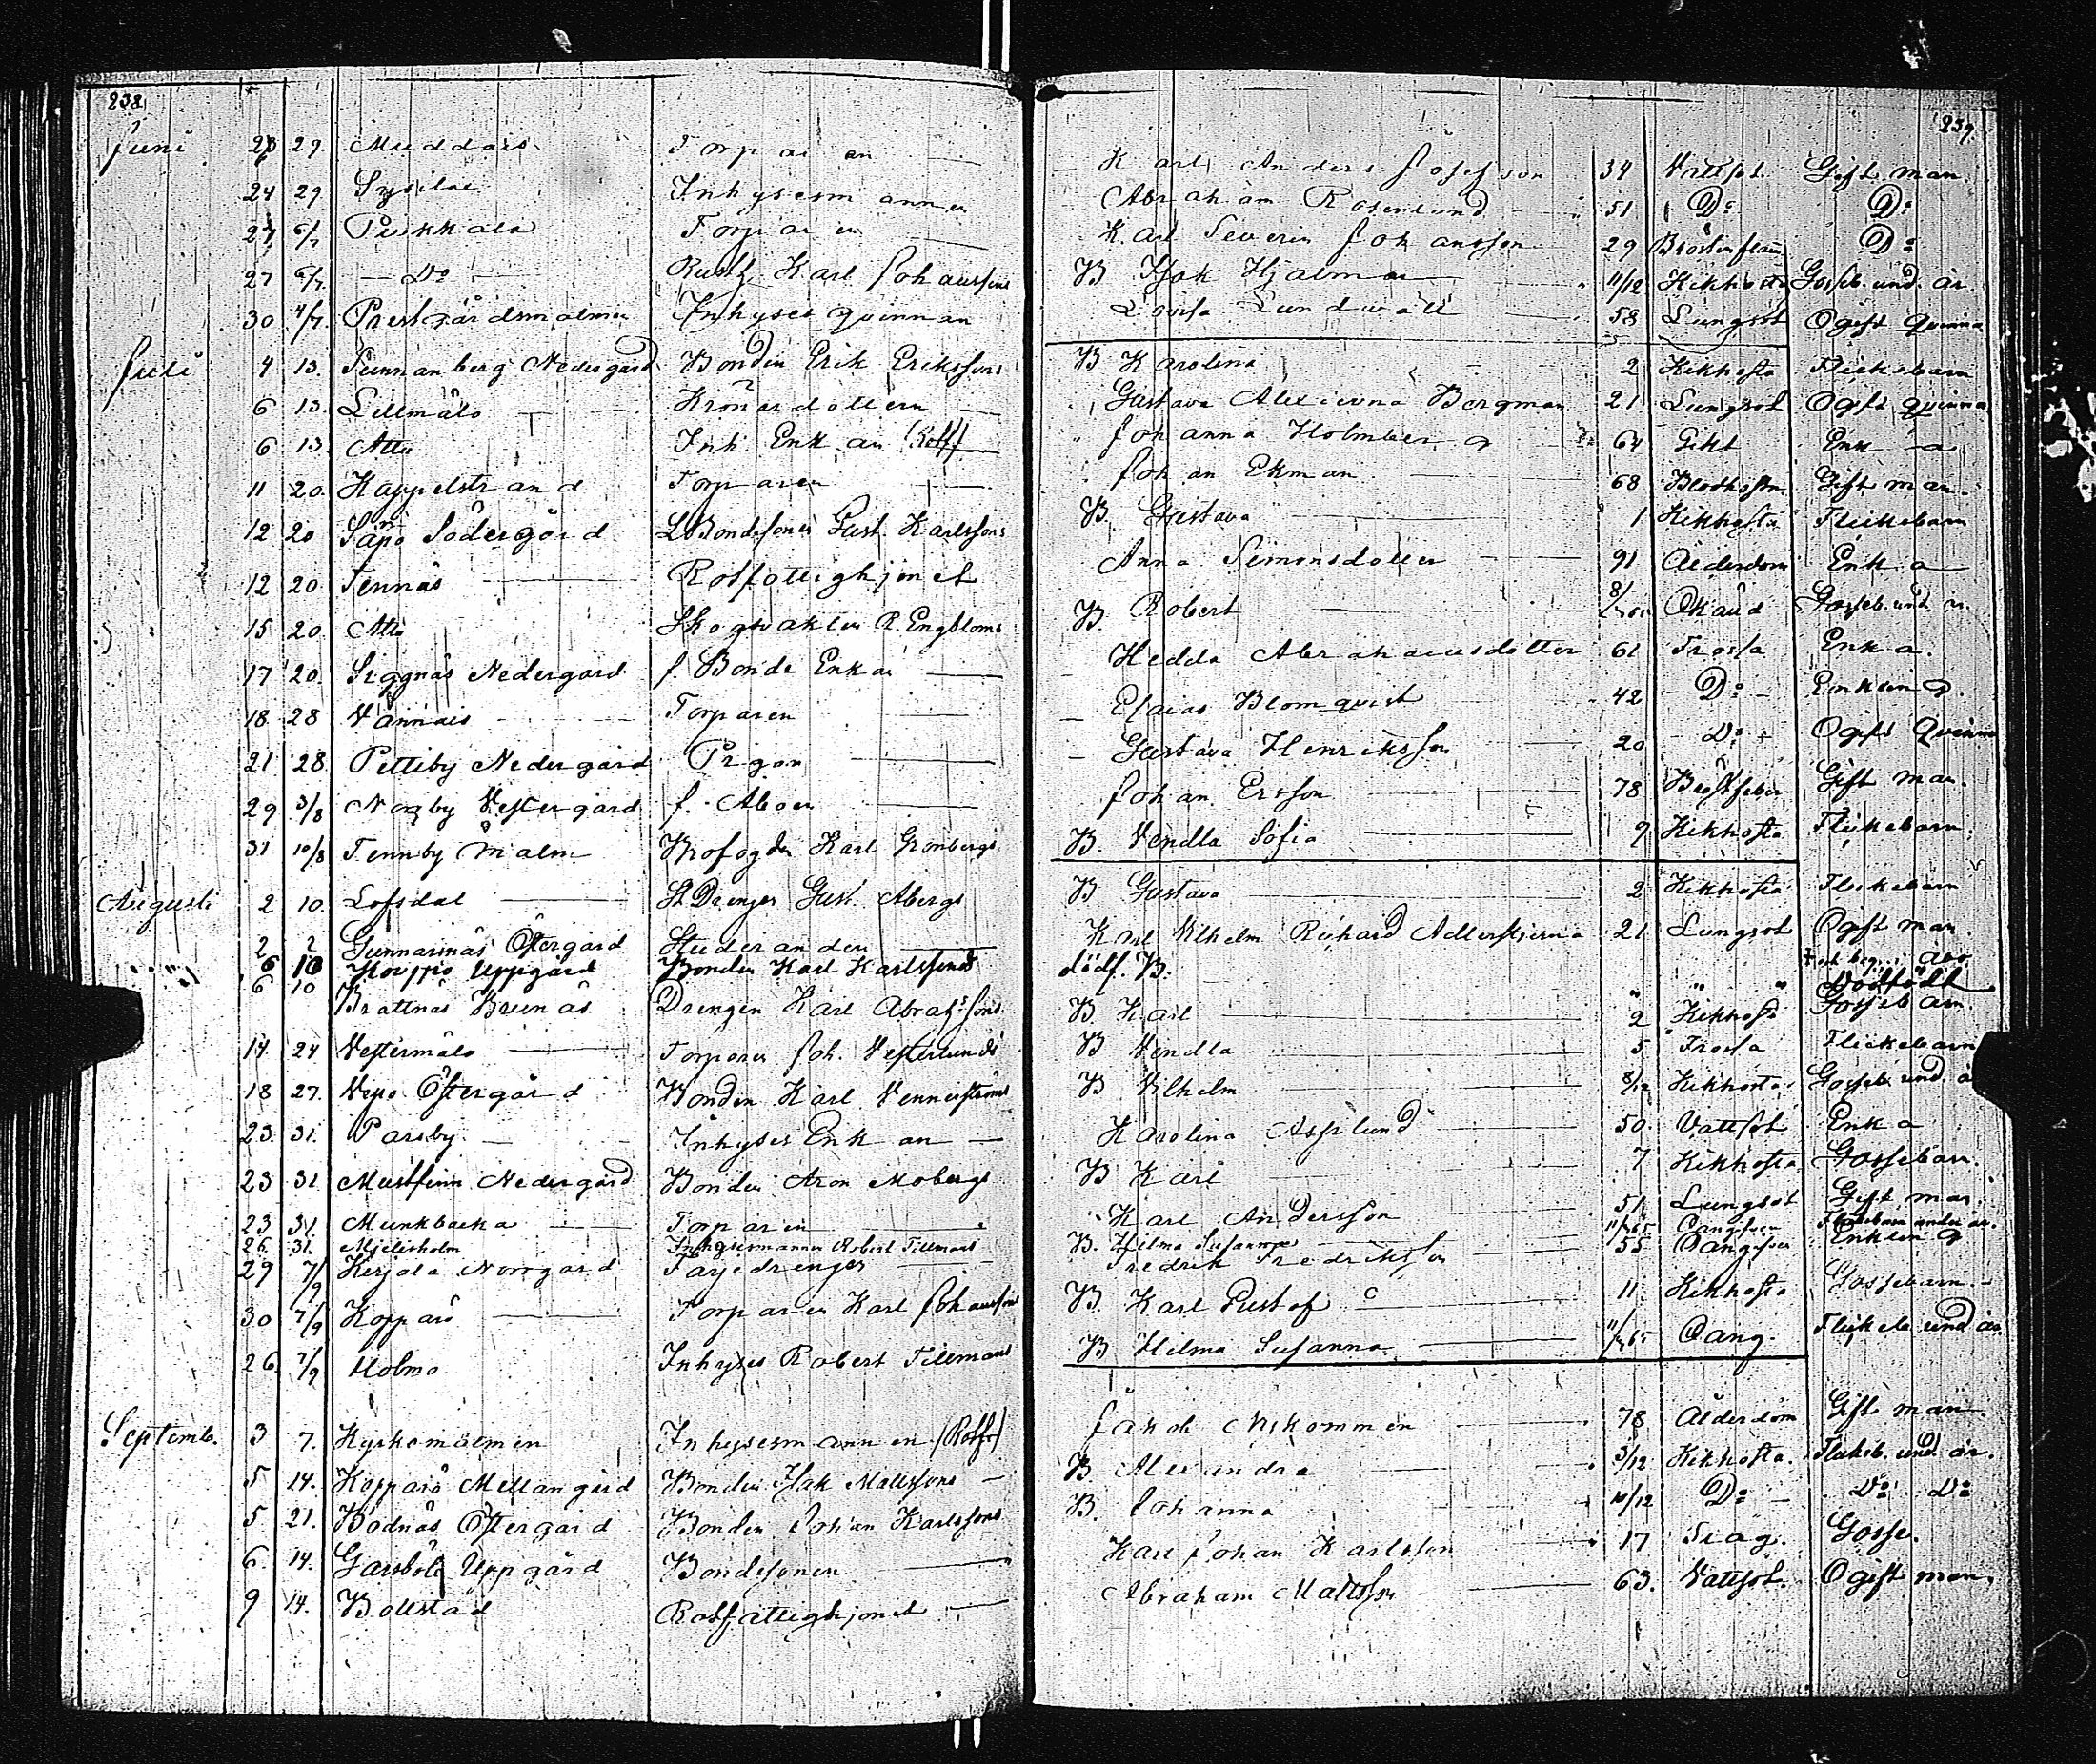 238
239
Juni 23 29. Muddais Torparen Karl Anders Josefsson 34 Vattsot Gift man.
24 29 Sysilax Inhysesmannen Abraham Rosenlund 51 Do Do
27 6/7 Pärkkala Torparen Karl Severin Johansson 29 Bröstinflam Do
27 6/7. Do Karl Johanssons B Isak Hjalmar 11/12 Kikhosta Gosseb. und. år
30 4/7. Prestgårdsmalmen Inhyses qvinnan Lovisa Lundwall 58 Lungsot Ogift Qvinna
Juli 4 13. Nedergård Bonden Erik Erikssons B Karolina 2 Kikhosta Flickebarn
6 13. Lillmälö dottern Gustava Bergman 21 Lungsot Ogift qvinna
6 13. Attu Inh. Enkan (Rotf) Johanna Holmberg 64 Gikt Enka
11 20. Kappelstrand Torparen Johan Ekman 68 Gift man.
12 20 Södergård Bondesonen Gust. Karlssons B. Gustava 1 Kikhosta Flickebarn
12 20. Tennäs Rotfattighjonet Anna Simonsdotter 91 Ålderdom Enka
15 20. Attu Skogvakten R. Engbloms B Robert 8/ Okänd Gosseb. und. år.
17 20. Siggnäs Nedergård f. Bonde Enkan Hedda Abrahamsdotter 61 Frossa Enka.
18. 28 Vännais Torparen Esaias Blomqvist 42 Do Enkling.
21 28. Pettiby Nedergård Pigan Gustava Henriksson 20 Do Ogift Qvinna
29 3/8 Norrby Vestergård f. Åboen Johan Ersson 78 Bröstfeber Gift man.
31 10/8 Tennby Malm Hofogden Karl Grönbergs B. Vendla Sofia 9 Kikhosta Flickebarn.
Augusti 2 10. Lofsdal St Drengen Gust. Åbergs B Gustava 2 Kikhosta Flickebarn
2 2 Gunnarsnäs Östergård Studeranden Karl Vilhelm Richard Adlerstjerna 21 Lungsot Ogift man.
begr. i Åbo
6 10 Koupo Uppgård Bonden Karl Karlssons dödf. B. " " " Dödfödt
6 10 Brattnäs Drengen Karl Abrahssons B Karl 2 Kikhosta Gossebarn.
14. 24 Vestermälö Torparen Joh. Vesterlunds B Vendla 5 Frossa Flickebarn
18 27. Vepo Östergård Bonden Karl Vennerströms B Vilhelm 8/12 Kikhosta Gosseb. und. å
23. 31. Parsby Inhyses Enkan Karolina Asplund 50. Vattsot Enka
23 31. Mustfinn Nedergård Bonden Aron Mobergs B Karl 7 Kikhosta Gossebarn.
23 31. Munkbacka Torparen Karl Andersson 51 Lungsot Gift man
26. 31. Mjelisholm Inhysesmannen Robert Tillmans B. Hilma Susanna Flickebarn under år.
29 7/9 Kirjala Norrgård Farjedrengen Fredrik Fredriksson 55 Enkling
30 7/9 Kopparö Torparen Karl Johanssons B. Karl Gustaf 11 Kikhosta Gossebarn.
26 7/9 Holmo Inhyses Robert Tillmans B Hilma Susanna Qäng. Flickeb. und år.
Septemb. 3 7. Kyrkomalmen Inhysesmannen (Rotf.) Jakob 78 Ålderdom Gift man.
5 14. Kopparö Mellangård Bonden Isak Mattssons B. Alexandra 3/12 Kikhosta. Flickeb. und. år.
5 21. Bodnäs Östergård Bonden Johan Karlssons B. Johanna 10/12 Do Do Do
6. 14. Garsböle Uppgård Bondesonen Karl Johan Karlsson 17 Slag. Gosse.
9 14. Bollstad Rotfattighjonet Abraham Mattsson 63. Vattsot. Ogift man.